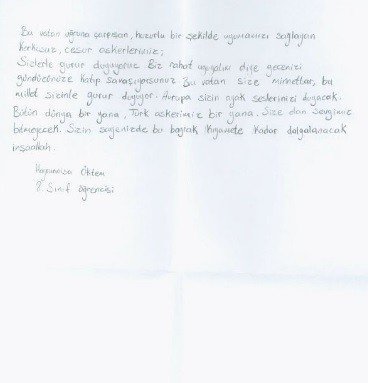 Bu vatan uğruna çarpışan, huzurlu bir şekilde uyumamızı sağlayan
korkusuz, cesur askerlerimiz;
Sizlerle gurur duyuyoruz. Biz rahat uyuyalım diye gecenizi
gündüzünüze katıp savaşıyorsunuz. Bu vatan size minnettar, bu
millet sizinle gurur duyuyor. Avrupa sizin ayak seslerinizi duyacak.
Bütün dünya bir yana, Türk askerimiz bir yana. Size olan sevgimiz
bitmeyecek. Sizin sayenizde bu bayrak kıyamete kadar dalgalanacak
inşaallah.
Ökten
8. Sınıf öğrencisi